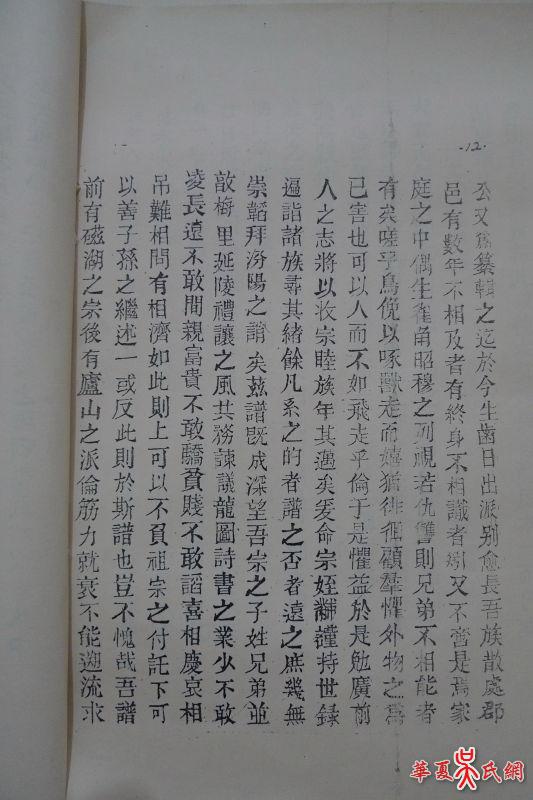 .12.
公又為纂輯之迄於今生齒日出派别愈長吾族散處郡
邑有數年不相及者有終身不相識者矧又不啻是焉家
庭之中偶生雀角昭穆之列視若仇讐則兄弟不相能者
有矣嗟乎鳥俛以啄獸走而嬉猶徘徊顧羣懼外物之為
已害也可以人而不如飛走乎倫于是懼益於是勉廣前
人之志將以收宗睦族年其邁矣爰命宗姪黼謹持世録
遍詣諸族尋其緒餘凡系之的者譜之否者遠之庶幾無
崇韜拜汾陽之誚矣兹譜既成深望吾宗之子姓兄弟並
敦梅里延陵禮讓之風共務諫議龍圖詩書之業少不敢
凌長遠不敢間親富貴不敢驕貧賤不敢謟喜相慶哀相
吊難相問有相濟如此則上可以不負祖宗之付託下可
以善子孫之繼述一或反此則於斯譜也豈不愧哉吾譜
前有磁湖之宗後有廬山之派倫筋力就衰不能遡流求
華夏吳氏網